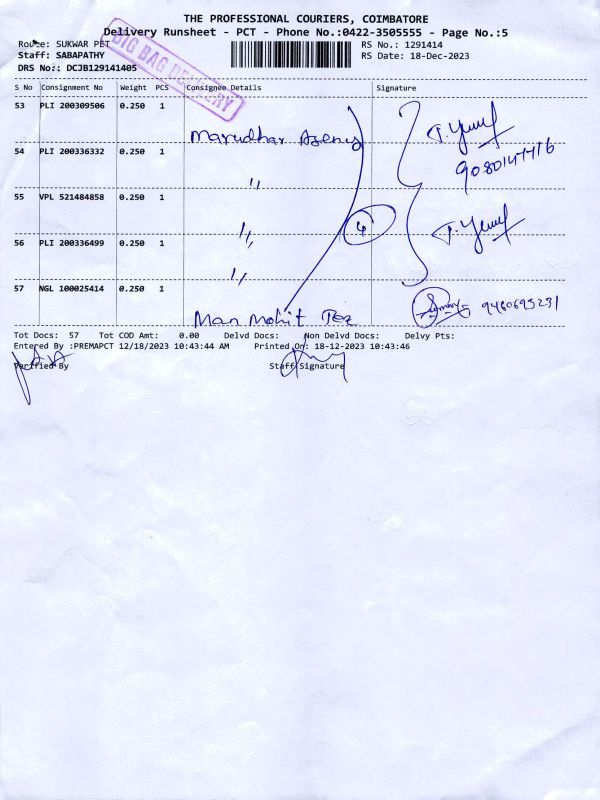 THE PROFESSIONAL COURIERS, COIMBATORE
Delivery Runsheet - PCT - Phone No.:0422-3505555 - Page No.:5
Route: SUKWAR PET RS No.: 1291414
Staff: SABAPATHY RS Date: 18-Dec-2023
DRS No.: DCJB129141405
BIG BAG DELIVERY
S No Consignment No Weight PCS Consignee Details Signature
53 PLI 200309506 0.250 1
Marudhar Agency
54 PLI 200336332 0.250 1
"
55 VPL 521484858 0.250 1
"
56 PLI 200336499 0.250 1
"
57 NGL 100025414 0.250 1
Man Mohit Tex
Tot Docs: 57 Tot COD Amt: 0.00 Delvd Docs: Non Delvd Docs: Delvy Pts:
Entered By :PREMAPCT 12/18/2023 10:43:44 AM Printed On: 18-12-2023 10:43:46
Verified By Staff Signature